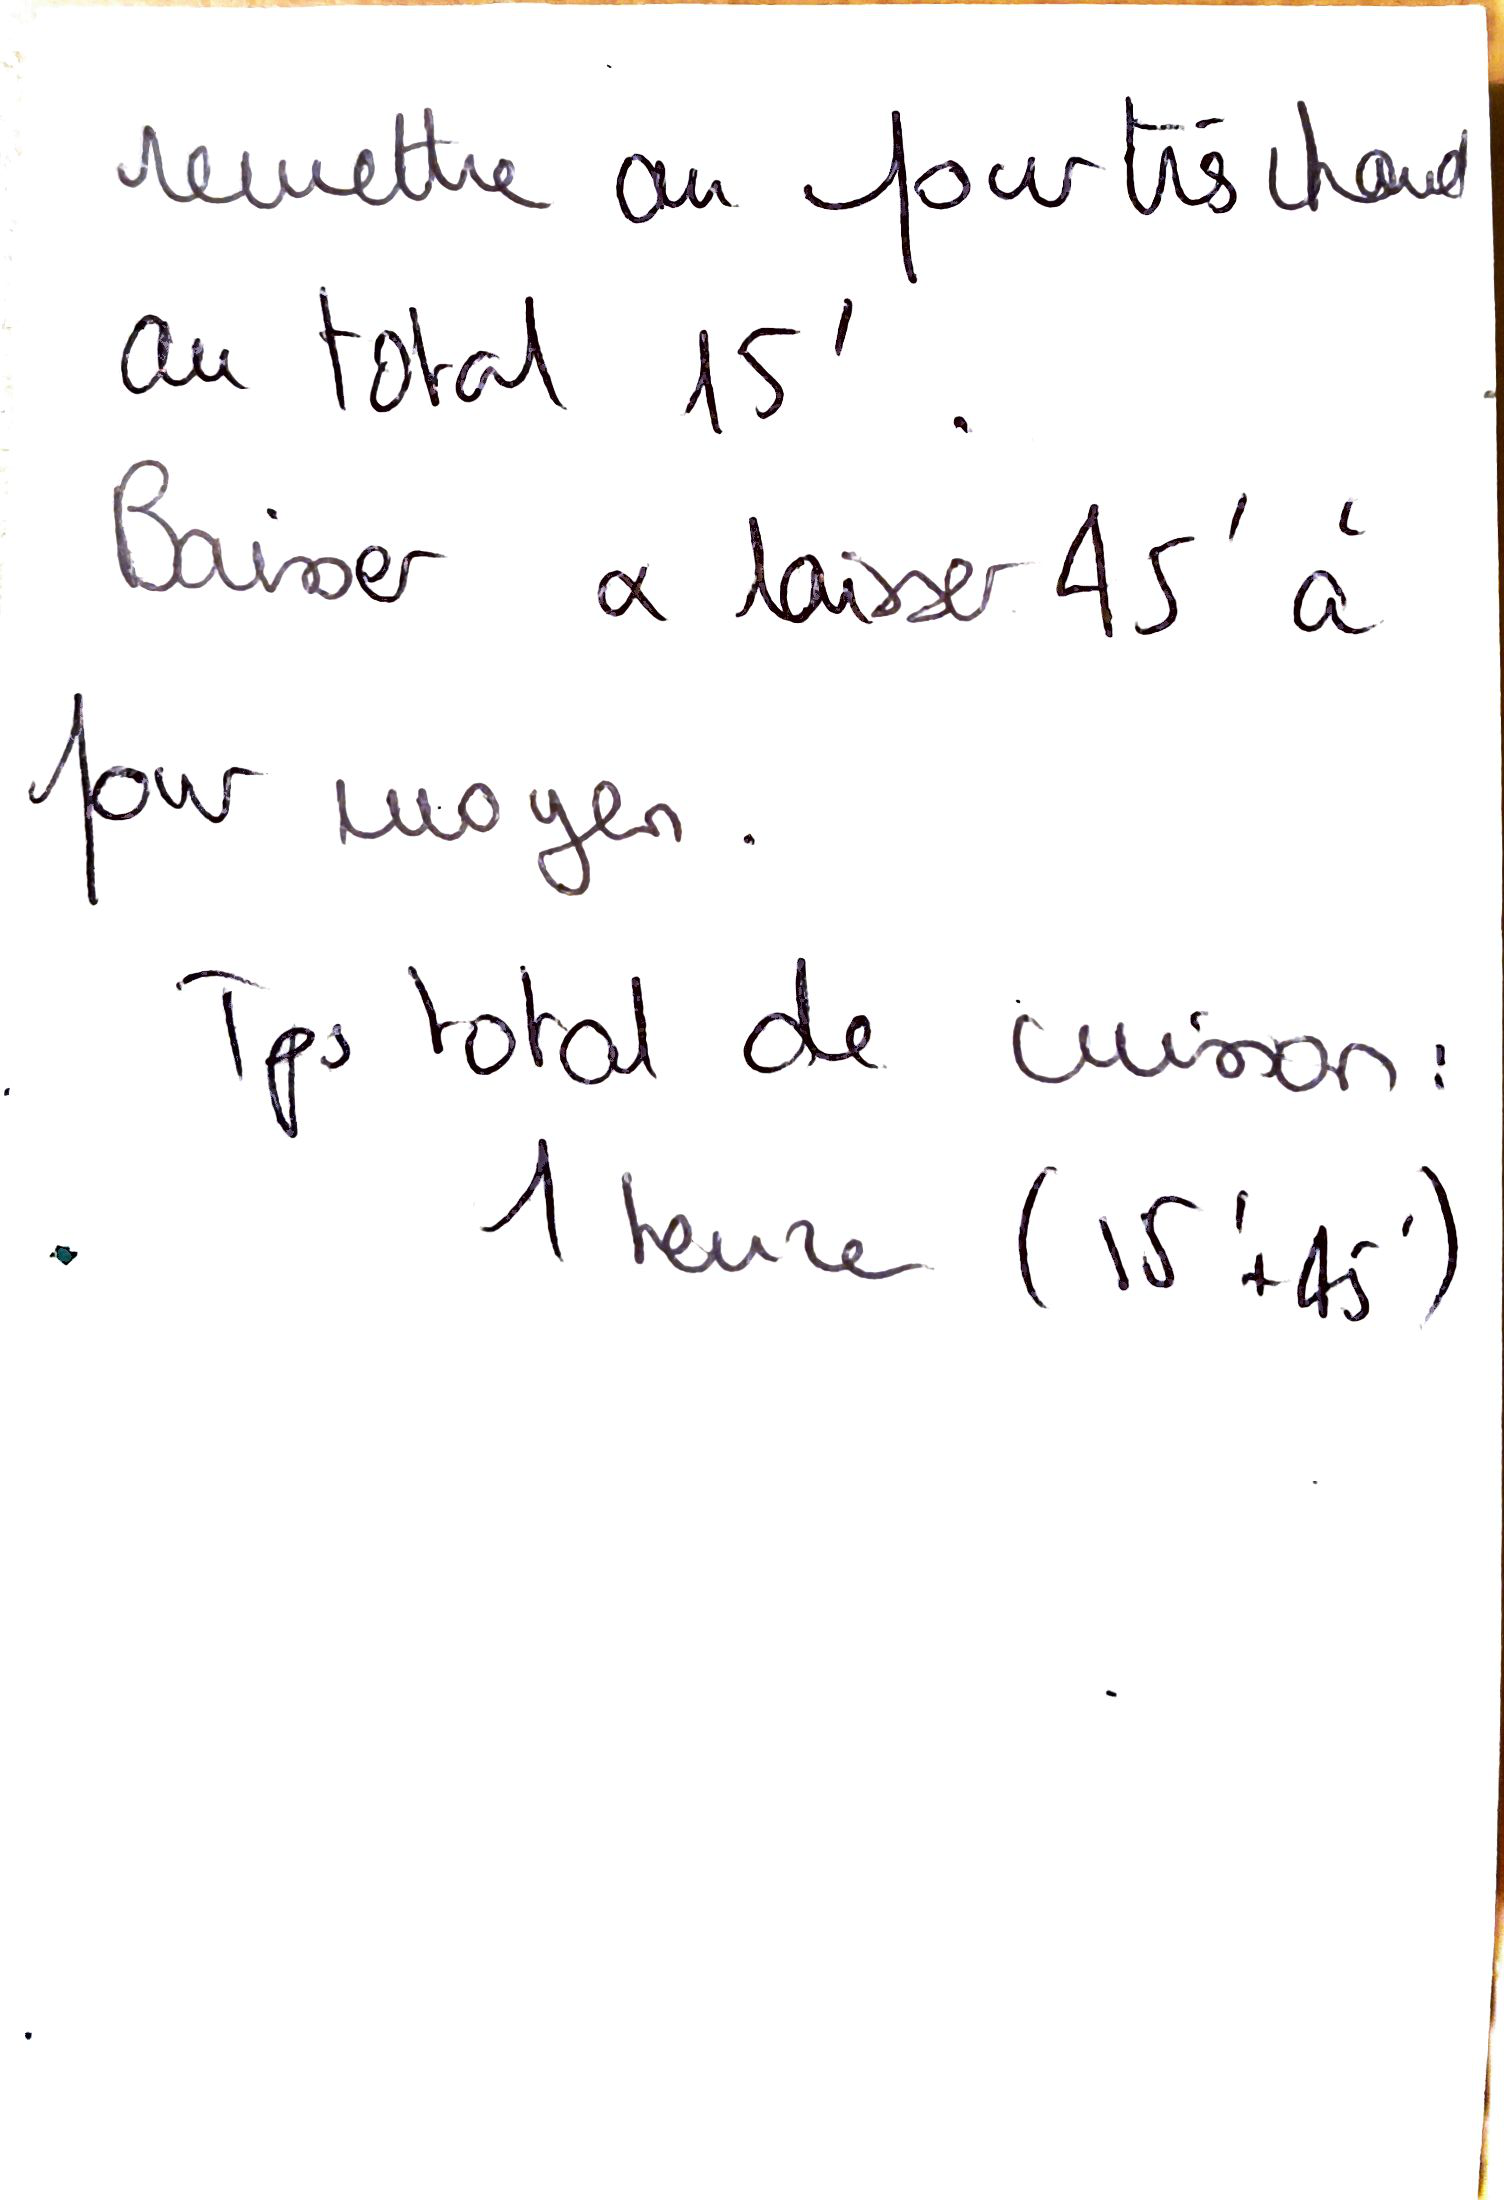 remettre au four très chaud
au total 15'.
Baisser & laisser 45' à
four moyen.
Tps total de cuisson :
1 heure (15' + 45')